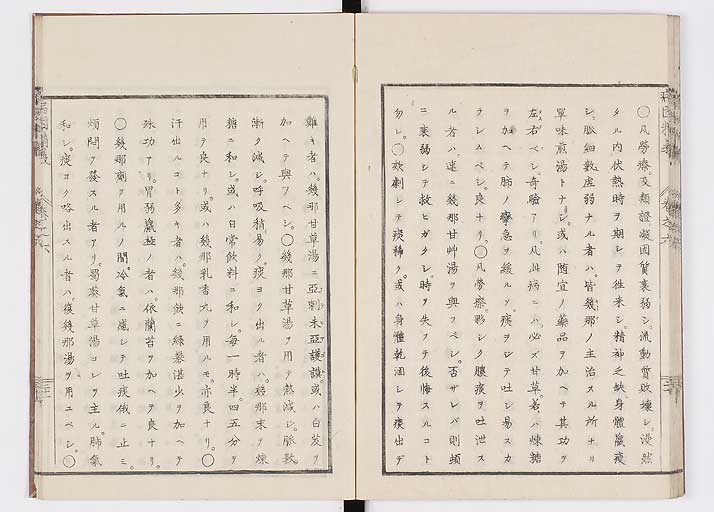 〇凡勞瘵及類證凝固質衰弱シ流動質敗壞シ漫然
タル内伏熱時ヲ期シテ徃来シ精神乏缺身體羸瘦
シ脈細數虚弱ナル者ハ皆幾那ノ主治スル所ナリ
單味煎湯トナシ或ハ随宜ノ藥品ヲ加ヘテ其功ヲ
左右スベシ奇驗アリ凡此病ニハ必ズ甘草若ハ煉糖
ヲ加ヘテ肺ノ攣急ヲ緩ルメ痰ヲシテ吐シ易スカ
ラシムベシ良ナリ〇凡勞瘵夥シク膿痰ヲ吐泄ス
ル者ハ速ニ幾那甘艸湯ヲ與フベシ否サレバ則頓
ニ衰弱シテ救ヒガタシ時ヲ失フテ後悔スルコト
勿レ〇欬劇シテ痰稀ク或ハ身體乾涸シテ痰出デ
難キ者ハ幾那甘草湯ニ亞刺未亞護謨或ハ白芨ヲ
加ヘテ與フベシ〇幾那甘草湯ヲ用テ熱減シ脈數
漸ク減シ呼吸稍易ク痰ヨク出ル者ハ幾那末ヲ煉
糖ニ和シ或ハ日常飲料ニ和シ毎一時半四五分ヲ
用テ良ナリ或ハ幾那乳香丸ヲ用ルモ亦良ナリ〇
汗出ルコト多キ者ハ幾那飲ニ緑礬湛少ヲ加ヘテ
殊功アリ胃弱羸極ノ者ハ依蘭苔ヲ加ヘテ良ナリ
〇幾那劑ヲ用ルノ間冷氣ニ感シテ吐痰俄ニ止ミ
煩悶ヲ發スル者アリ蜀葵甘草湯コレヲ主ル肺氣
和シ痰ヨク咯出スル者ハ復幾那湯ヲ用ユベシ〇